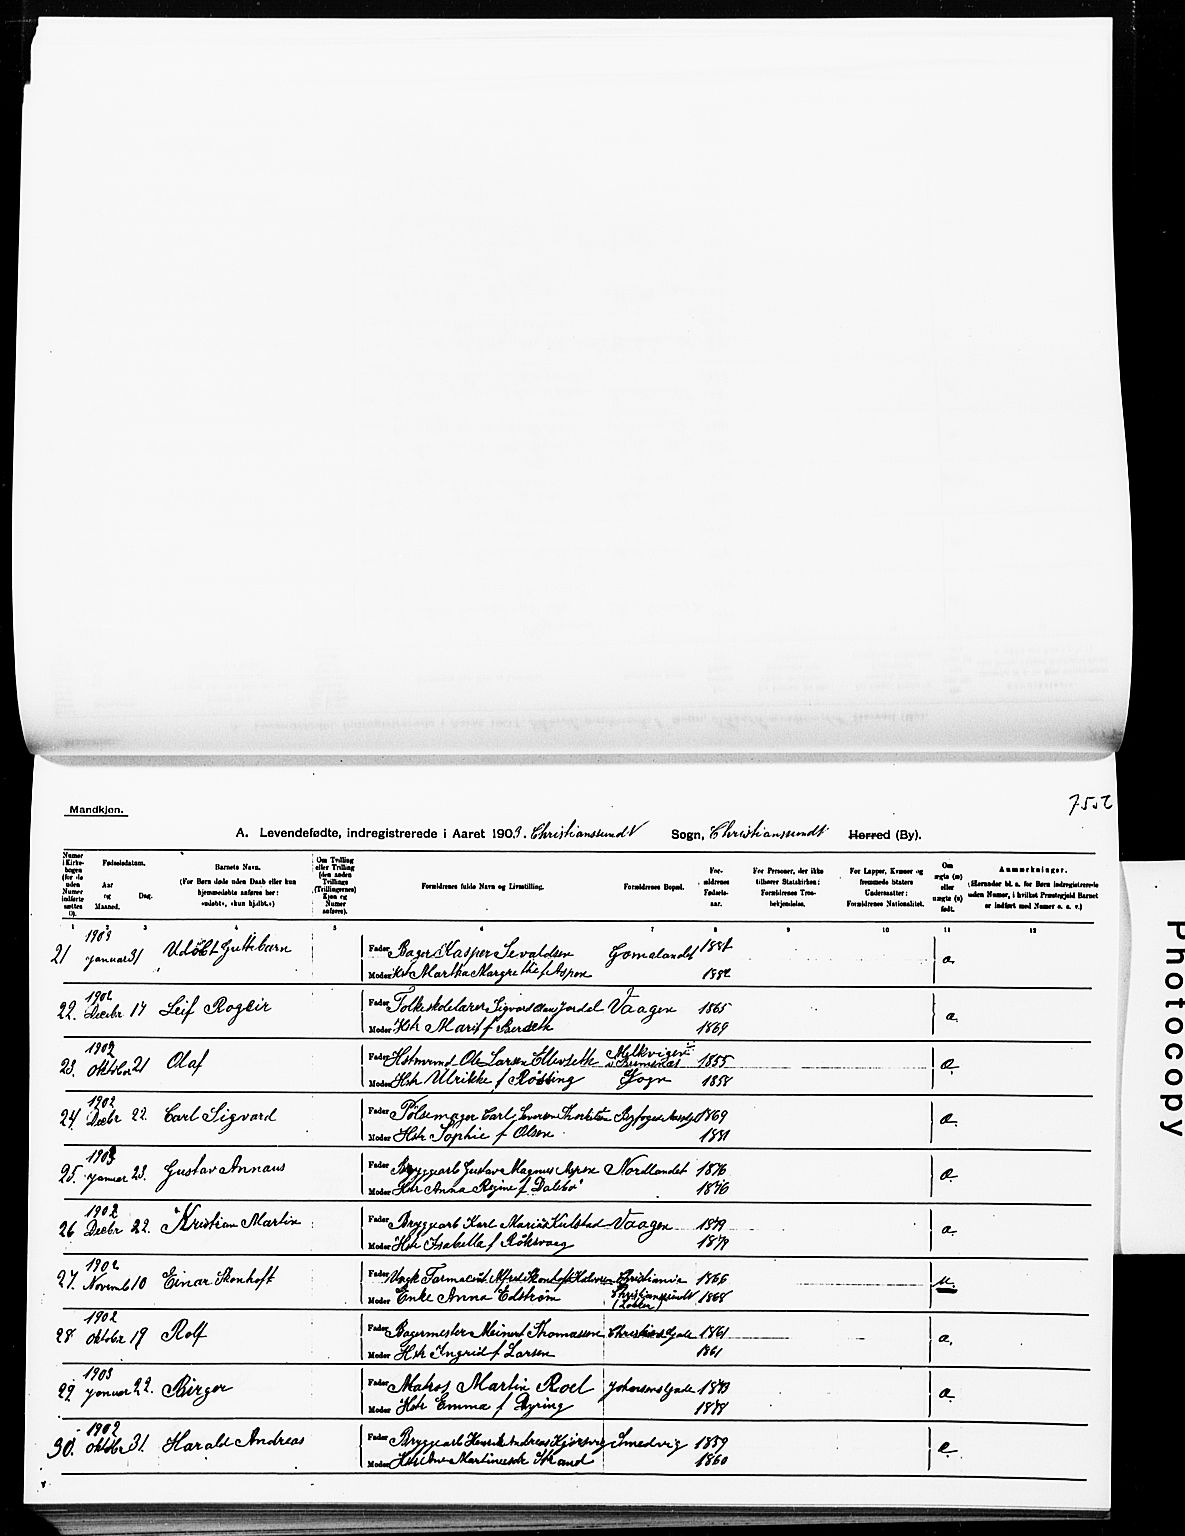 7552
Mandkjøn.
A. Levendefødte, indregistrerede i Aaret 1903. Christianssund Sogn, Christianssund Herred (By).
Numer i Kirkebogen (for de uden Numer indførte sættes 0).
Fødselsdatum. Aar og Maaned. Dag.
Barnets Navn. (For Børn døde uden Daab eller kun hjemmedøbte anføres her: »udøbt«, »kun hj.dbt.«)
Om Tvilling eller Trilling (den anden Tvillings (Trillingernes) Kjøn og Numer anføres).
Forældrenes fulde Navn og Livsstilling.
Forældrenes Bopæl.
Forældrenes Fødselsaar.
For Personer, der ikke tilhører Statskirken: Forældrenes Trosbekjendelse.
For Lapper, Kvæner og fremmede Staters Undersaatter: Forældrenes Nationalitet.
Om ægte (æ) eller uægte (u) født.
Anmærkninger. (Herunder bl. a. for Børn indregistrerede uden Numer, i hvilket Præstegjeld Barnet er indført med Numer o. s. v.)
1 2 3 4 5 6 7 8 9 10 11 12
1903
21 Januar 31 Udøbt Guttebarn Fader Bager Kasper Sevaldsen Gomalandet
Moder Hst Martha Margrethe f Aspen 1882 æ.
1902
22. Decbr 17 Leif Rogeir Fader Folkeskolelærer Sigvard Vaagen 1865
Moder Hstr Marit f 1869 æ.
1902
23. Oktober 21 Olaf Fader Ole Larsen 1855
Moder Hstr Ulrikke f Røsting Sogn 1858 æ.
1902
24. Decbr 22. Carl Sigvard Fader Pølsemager Carl 1869
Moder Hstr Sophie f Olsen 1881 æ.
1903
25. Januar 23. Gustav Annæus Fader Bryggearb Gustav Magnus Nordlandet 1876
Moder Hstr Anna Regine f Dalebø 1876 æ.
1902
26 Decbr 22. Kristian Martin Fader Bryggearb Karl Marius Kulstad Vaagen 1879
Moder Hstr Isabella f Røksvaag 1879 æ.
1902
27. Novemb 10 Einar Skonhoft Fader Ungk Farmaceut Alfred Skonhoft Christiania 1866
Moder Enke Anna Edstrøm Christianssund 1868 u.
1902
28 Oktobr 19 Rolf Fader Bagermester Meinert Thomassen 1861
Moder Hstr Ingrid f Larsen 1861 æ.
1903
29 Januar 22. Birger Fader Matros Martin Roel Johnsens Gade 1873
Moder Hstr Emma f Dyring 1878 æ.
1902
30. Oktobr 31. Harald Andreas Fader Bryggearb Henrik Andreas Smedvig 1859
Moder Strand 1860 æ.
Photocopy